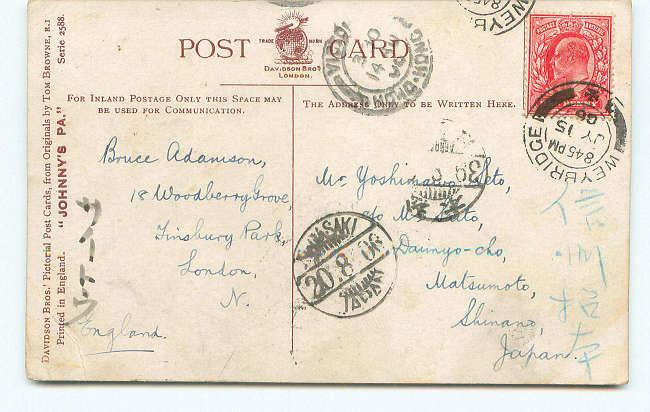 POST CARD
TRADE MARK
DAVIDSON BROS
LONDON.
FOR INLAND POSTAGE ONLY THIS SPACE MAY
BE USED FOR COMMUNICATION.
THE ADDRESS ONLY TO BE WRITTEN HERE.
DAVIDSON BROS.' Pictorial Post Cards, from Originals by TOM BROWNE, R.I Serie 2588.
Printed in England. "JOHNNY'S PA."
Bruce Adamson,
18 Woodberry Grove,
Finsbury Park,
London,
N.
England.
Mr Yoshimaro
c/o M.
Daimyo-cho,
Matsumoto,
Shinano,
Japan.
WEYBRIDGE
8.45 PM
JY 15
06
WEYBRIDGE
8.45
VICTORIA
HONG-KONG
20·8·06